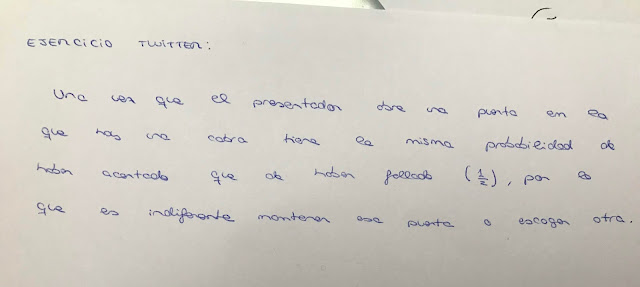 EJERCICIO TWITTER:
Una vez que el presentador abre una puerta en la
que hay una cabra tiene la misma probabilidad de
haber acertado que de haber fallado (1/2), por lo
que es indiferente mantener esa puerta o escoger otra.